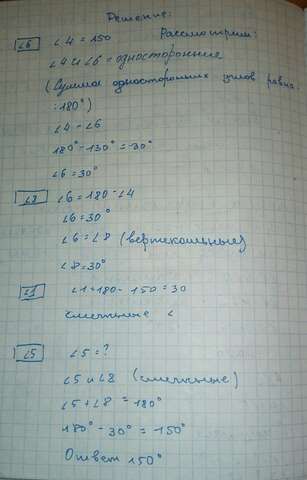 Решение:
∠6 ∠4 = 150 Рассмотрим:
∠4 и ∠6 = односторонние
(Сумма односторонних углов равна
:180°)
∠4 - ∠6
180° - 130° = 30°
∠6 = 30°
∠8 ∠6 = 180 - ∠4
∠6 = 30°
∠6 = ∠8 (вертекальные)
∠8 = 30°
∠1 ∠1 = 180 - 150 = 30
смежные ∠
∠5 ∠5 = ?
∠5 и ∠8 (смежные)
∠5 + ∠8 = 180°
180° - 30° = 150°
Ответ 150°